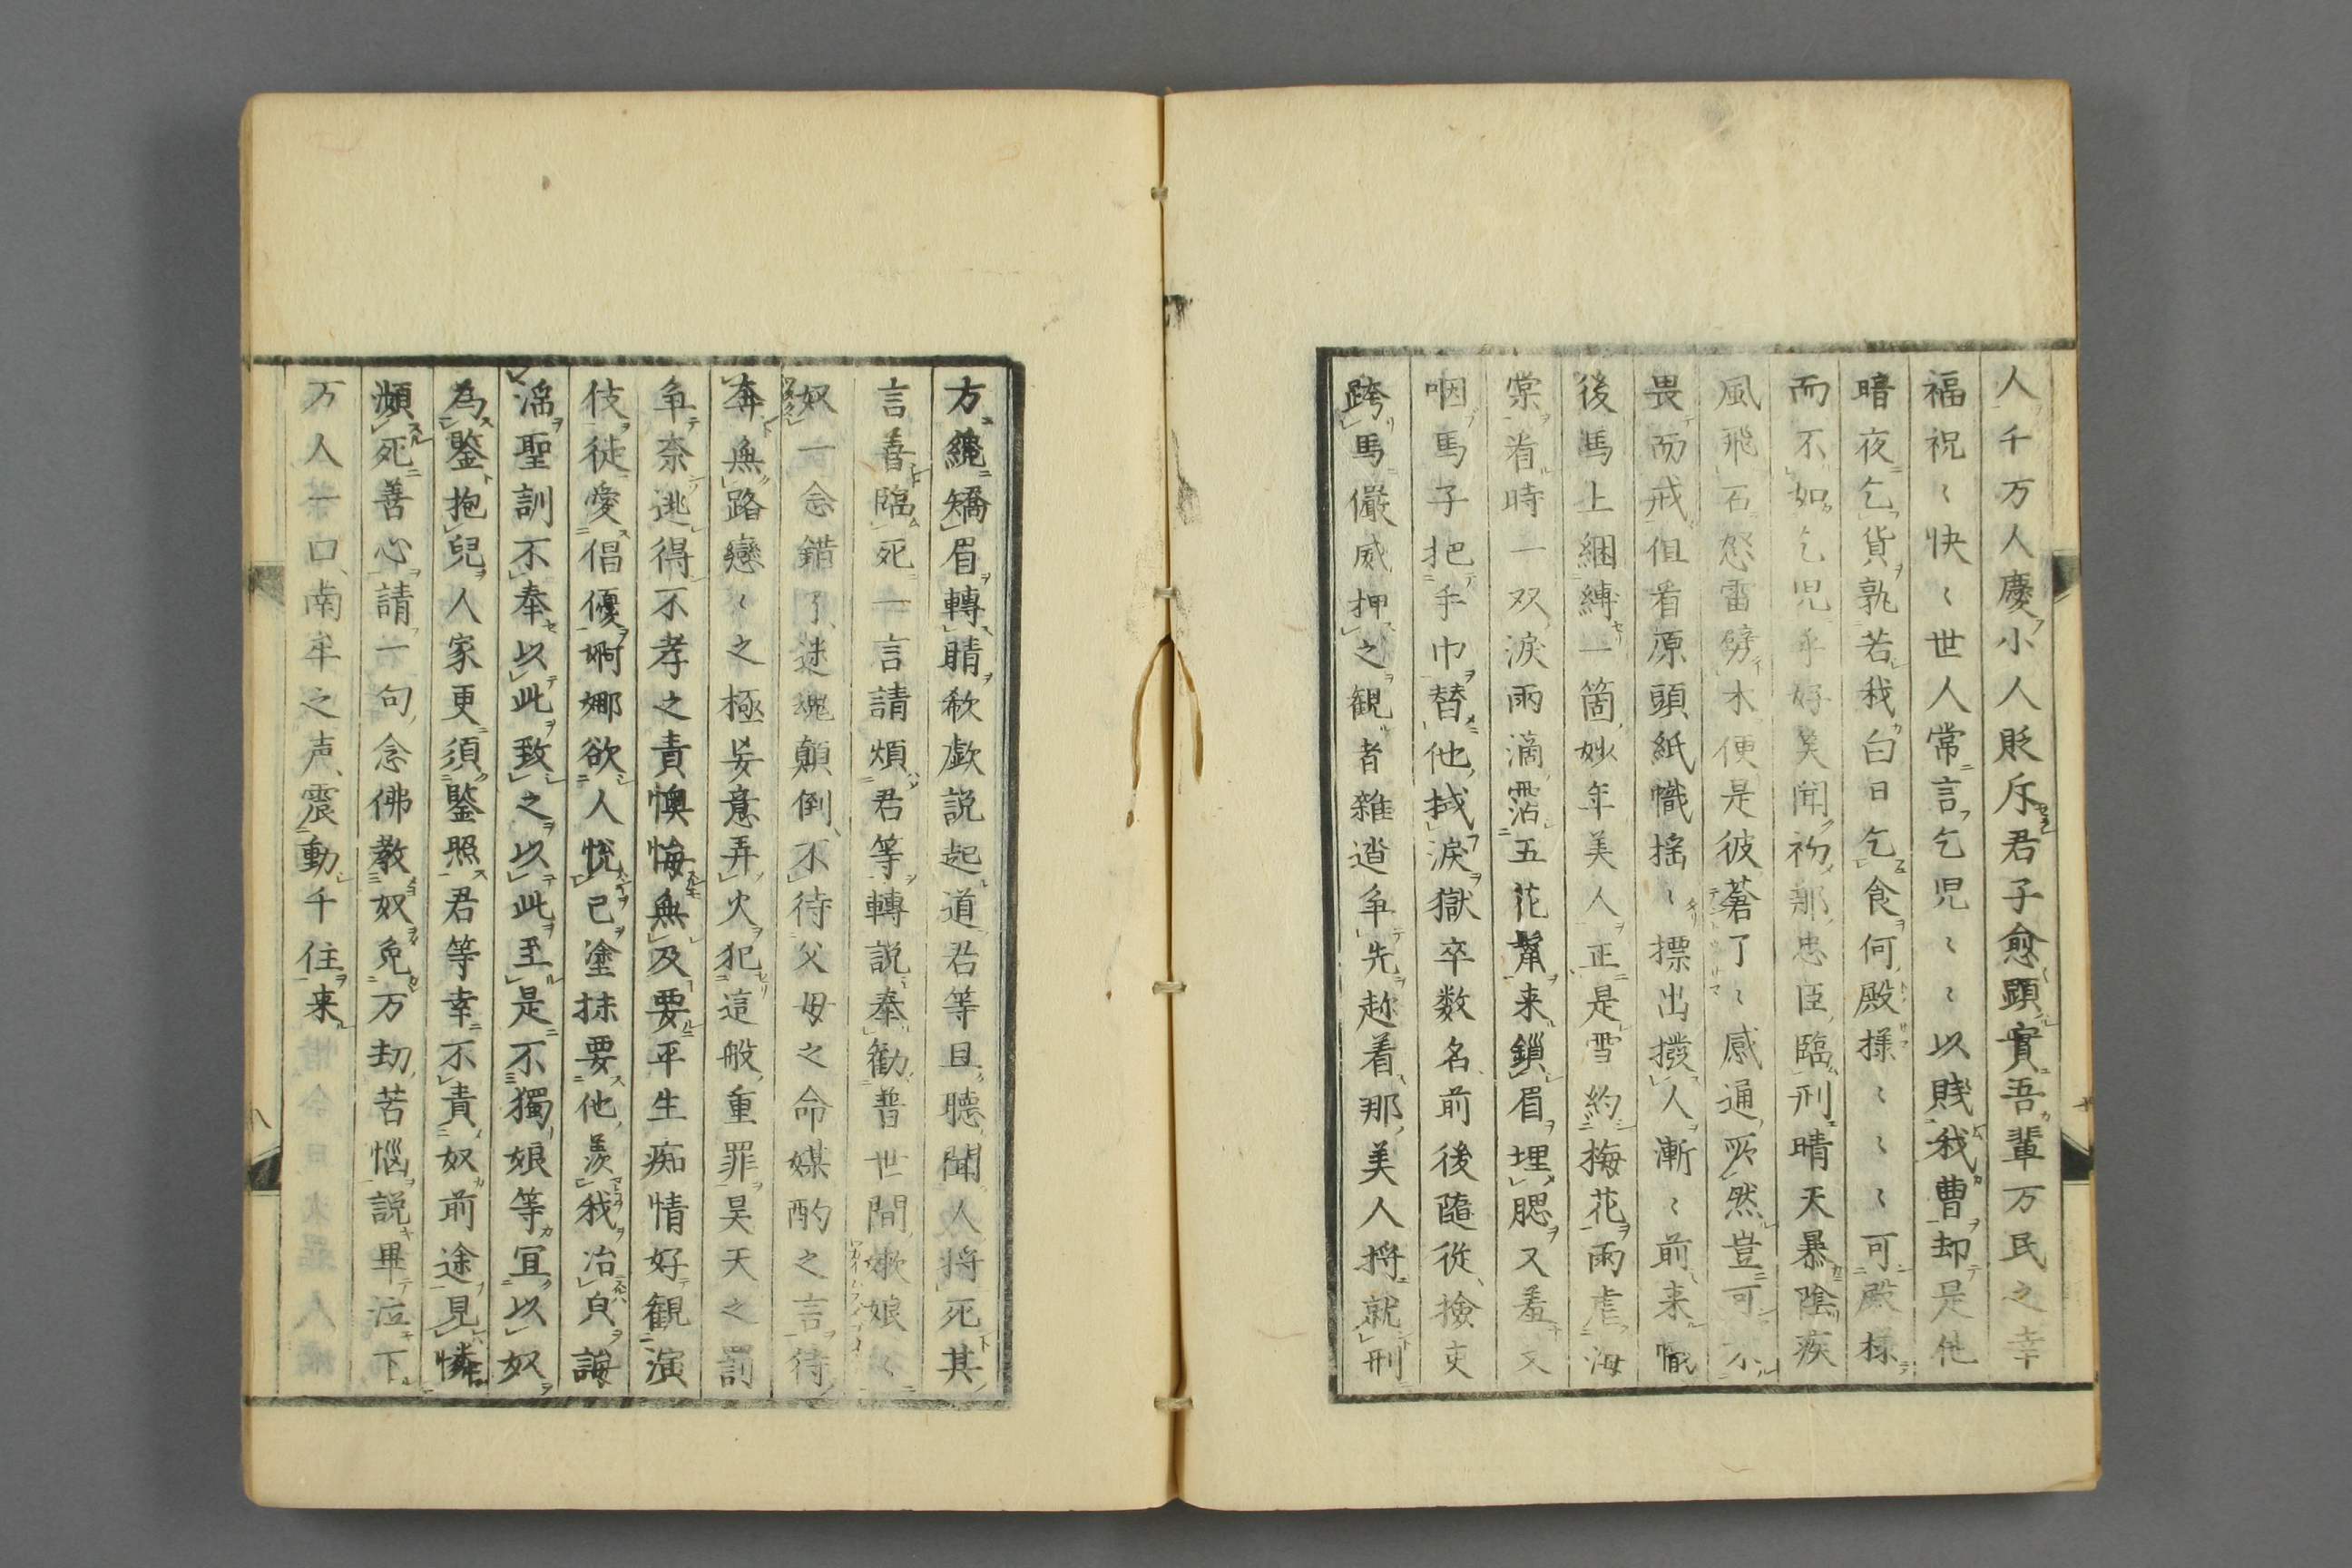 人千万人慶小人貶斥君子愈顕實吾輩万民之幸
福祝〻快〻世人常言乞児〻〻以賤我曹却是他
暗夜乞貨孰若我白日乞食何殿様〻〻〻可殿様
而不如乞児乎好笑聞初那忠臣臨刑晴天暴陰疾
風飛石怒雷劈木便是彼蒼了〻感通所然豈可不
畏而戒但看原頭紙幟揺〻標出撥人漸〻前来幟
後馬上綑縛一箇妙年美人正是雪約梅花雨虐海
棠看時一双涙雨滴霑五花鬣来鎖眉埋腮又羞又
咽馬子把手巾替他拭涙獄卒数名前後随従撿吏
跨馬儼威押之観者雑沓争先趂着那美人将就刑
方纔矯眉轉睛欷歔説起道君等且聴聞人将死其
言善臨死一言請煩君等轉説奉勧普世間嫩娘〻
奴一念錯了迷魂顛倒不待父母之命媒酌之言待
奔無路戀〻之極妄意弄火犯這般重罪昊天之罰
争奈逃得不孝之責懊悔無及要平生痴情好観演
伎徒愛倡優婀娜欲人悦己塗抹要他羨我冶皃誨
淫聖訓不奉以此致之以此至是不獨娘等宜以奴
為鑒抱兒人家更須鑒照君等幸不責奴前途見憐
頻死善心請一句念佛教奴免万劫苦惱説畢泣下
万人一口南牟之声震動千住来